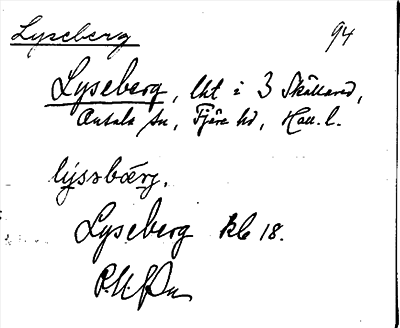 Lyseberg 94
Lyseberg, lht i 3 Skällared,
Onsala sn, Fjäre hd, Hall. l.
lýssbærj.
Lyseberg kb 18.